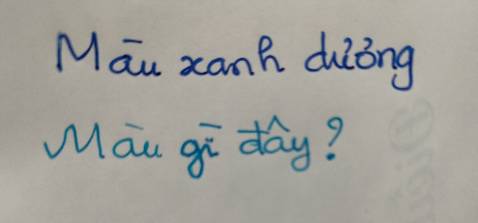 Màu xanh dương
Màu gì đây?